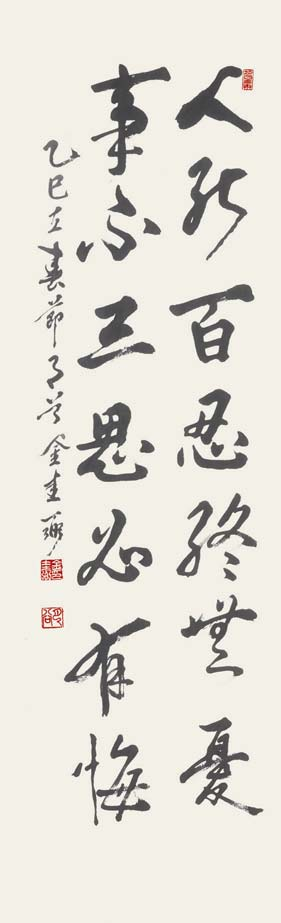 人能百忍終無憂
事不三思必有悔
乙巳立春節月谷金圭